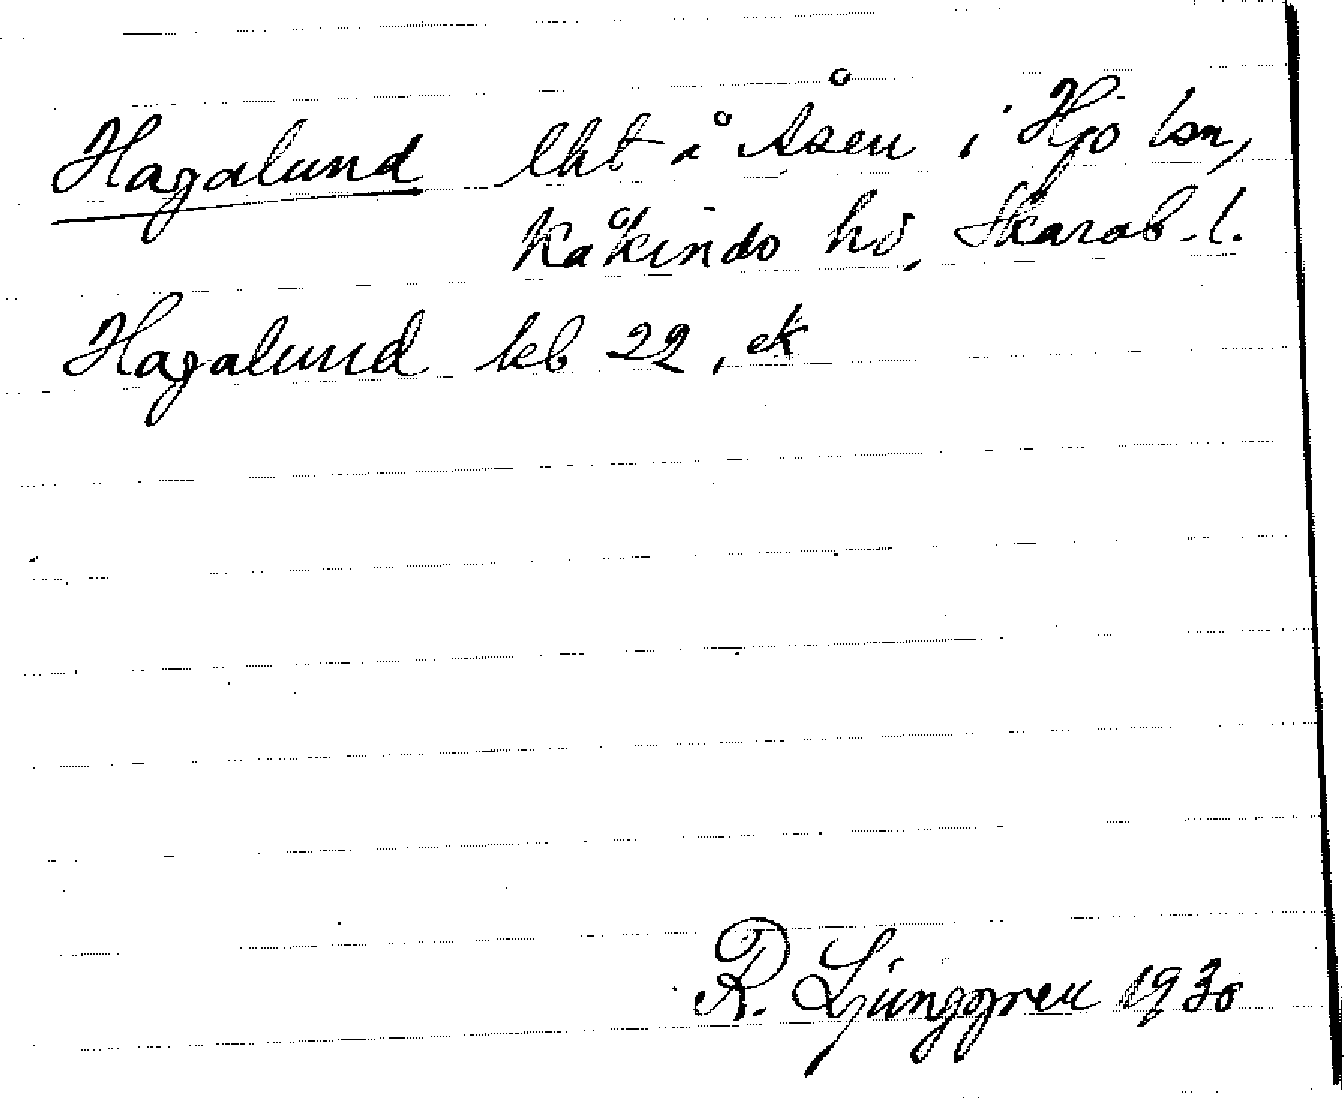 Hagalund lht å Åsen i Hjo lsn,
Kåkinds hd, Skarab. l.
Hagalund kb 22, ek
R. Ljunggren 1930